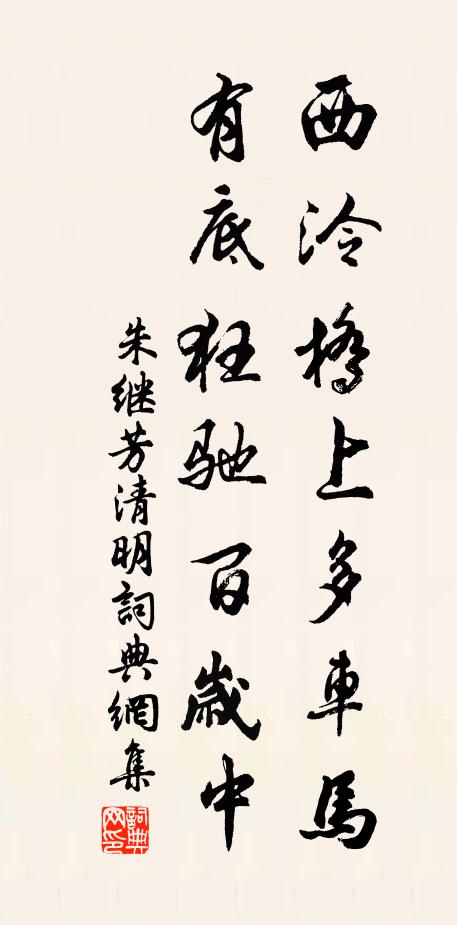 西泠橋上多車馬
有底狂驰百歲中
朱继芳清明詞典網集
詞典网印